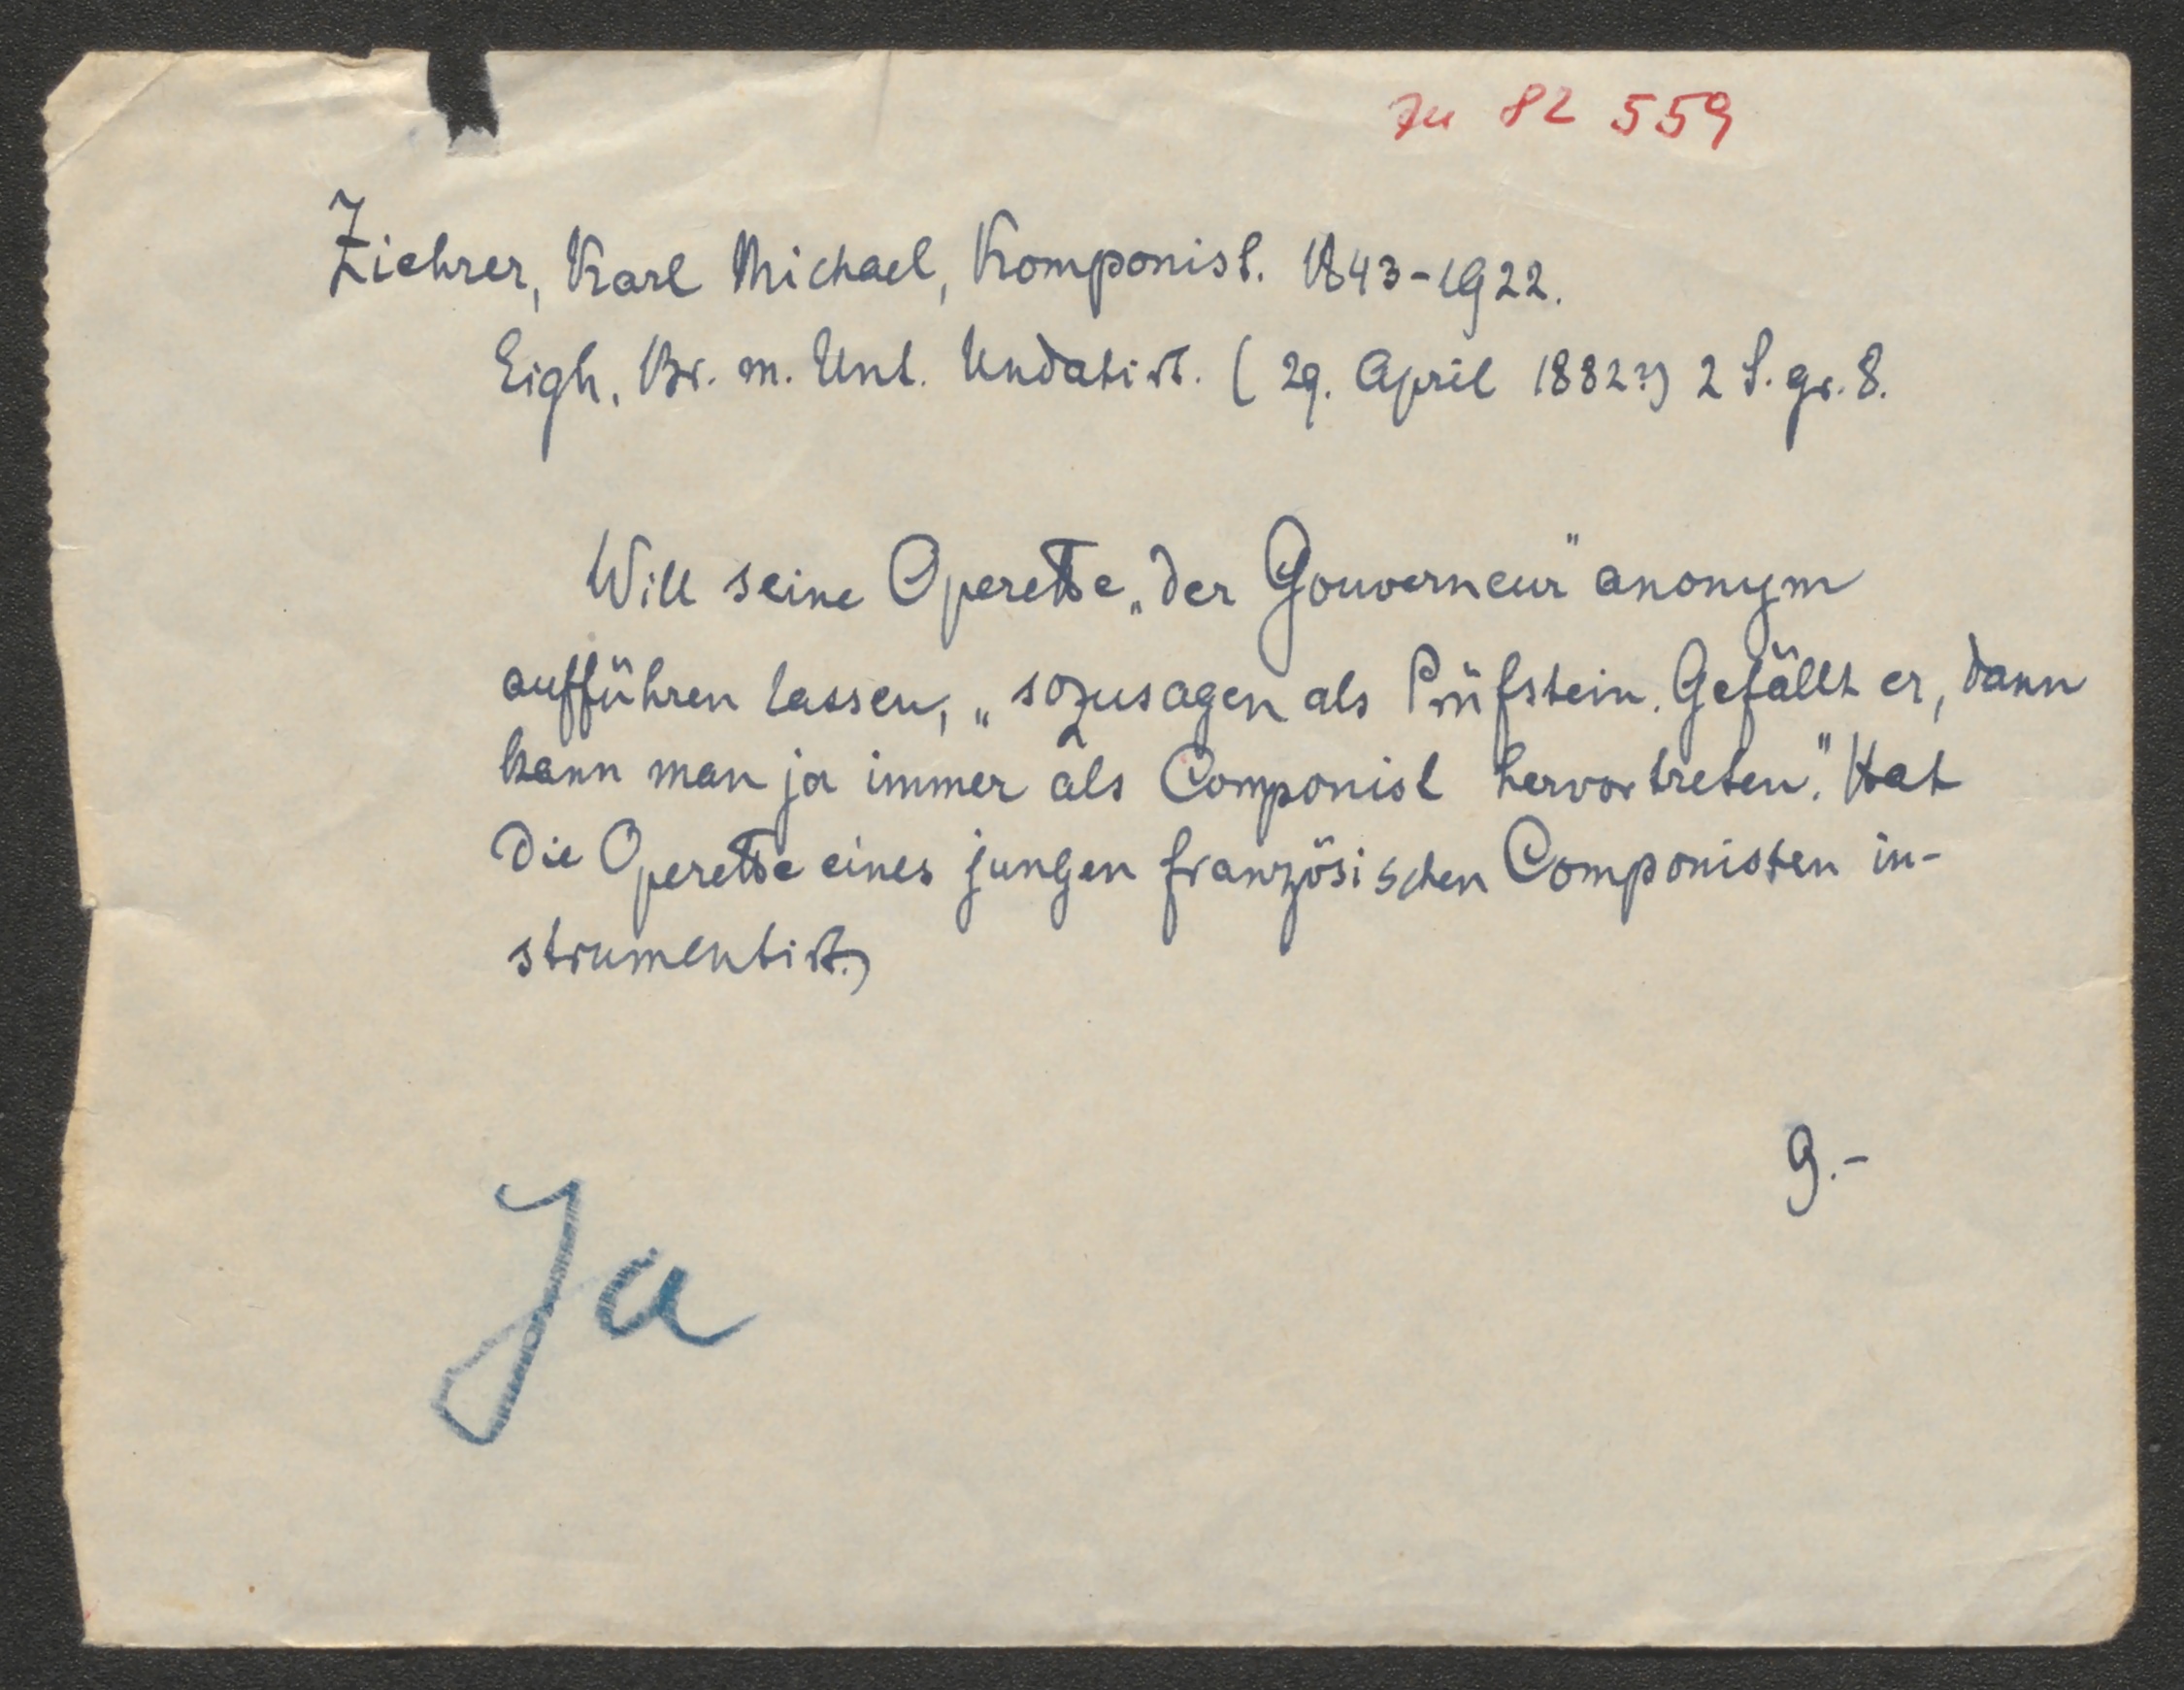 Zu 82 559
Ziehrer, Karl Michael, Komponist. 1843-1922.
Eigh. Br. m. Unt. Undatirt. (29. April 1882?) 2 S. gr. 8.
Will seine Operette „der Gouverneur" anonym
aufführen lassen, „sozusagen als Prüfstein. Gefällt er, dann
kann man ja immer als Componist hervortreten." Hat
die Operette eines jungen französischen Componisten in-
strumentirt.)
9.-
Ja